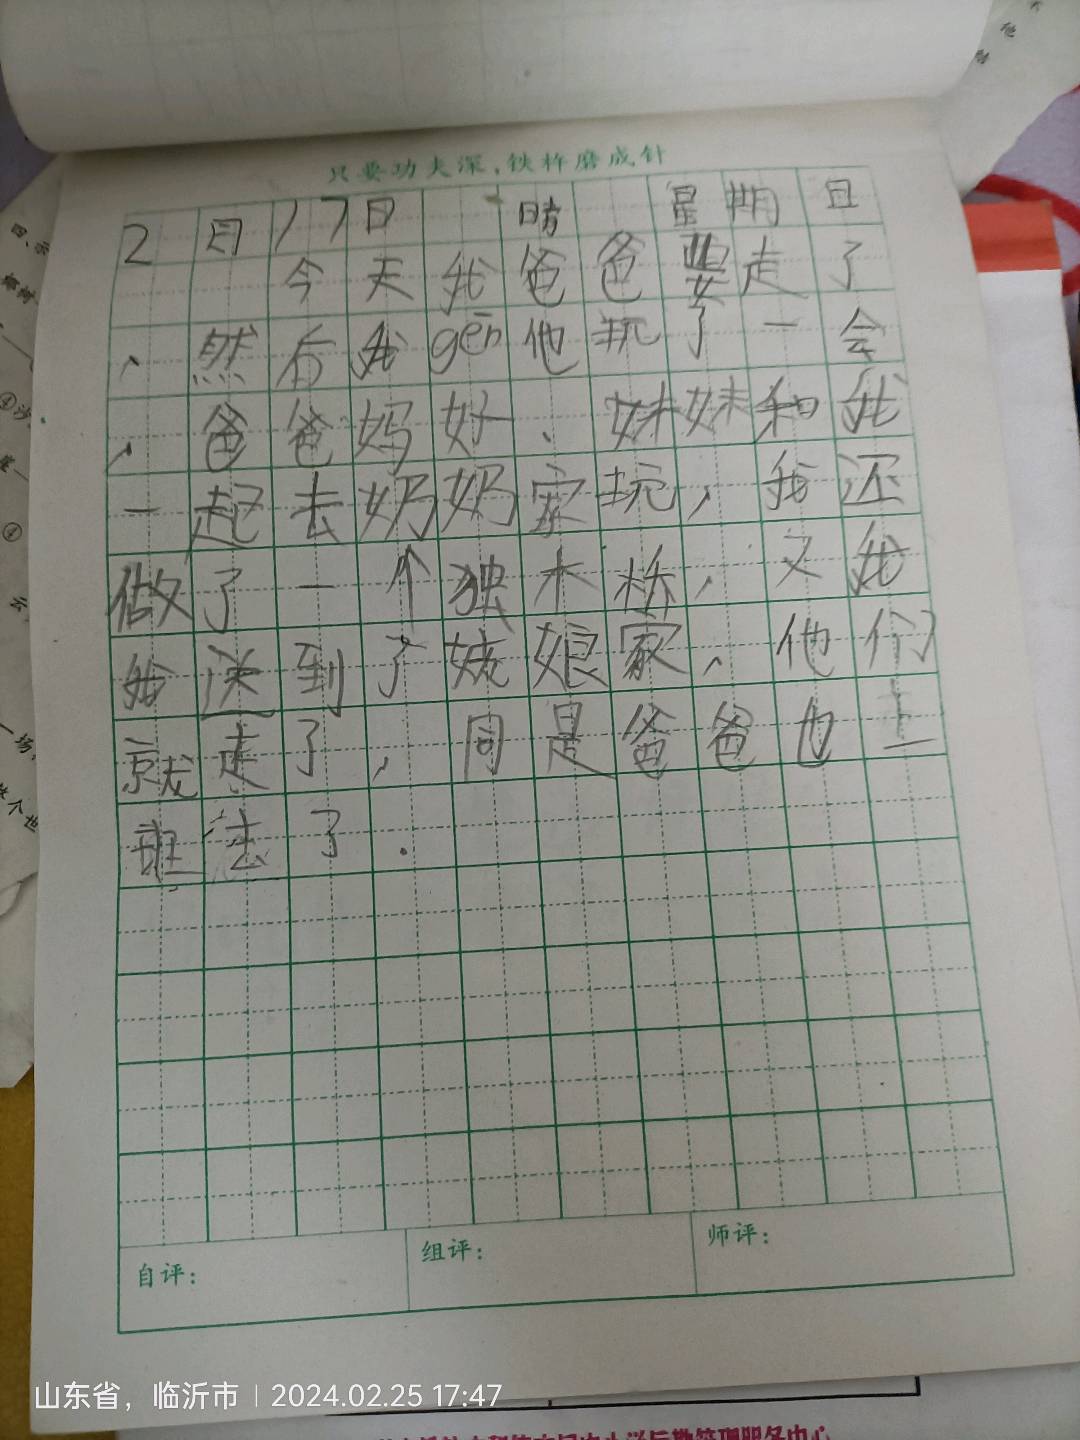 只要功夫深，铁杵磨成针
2月17日 日方 星期日
今天我爸爸要走了
、然后我gēn他玩了一会
，爸爸妈好、妹妹和我
一起去奶奶家玩，我还
做了一个独木桥，又我
我送到了姥娘家，他们
就走了，同是爸爸也上
班去了.
自评：
组评：
师评：
山东省，临沂市 | 2024.02.25 17:47